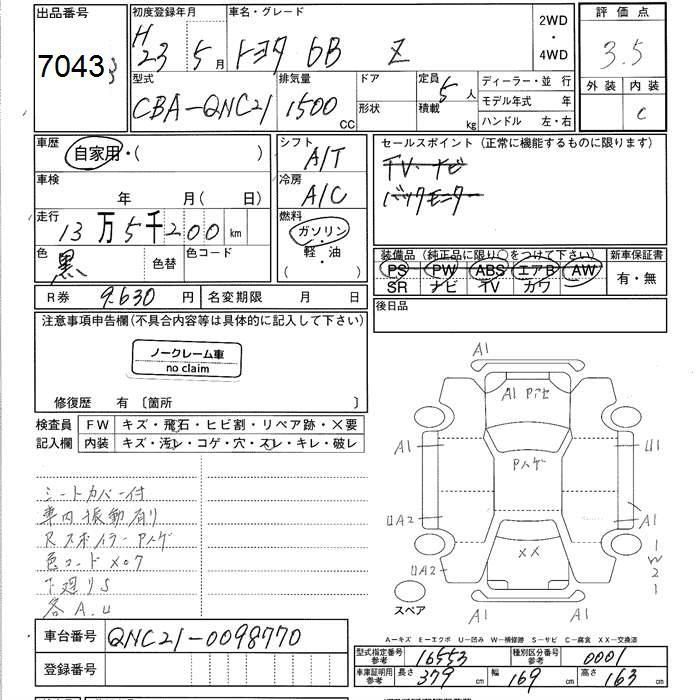 出品番号
7043
初度登録年月
H23年5月
車名・グレード
トヨタ bB Z
2WD
・
4WD
評価点
3.5
外装 内装
C
型式
CBA-QNC21
排気量
1500 CC
ドア
形状
定員 5人
積載 kg
ディーラー・並行
モデル年式 年
ハンドル 左・右
車歴
自家用・( )
車検
年 月( 日)
走行
13万5千200km
色
黒
色替
色コード
シフト
A/T
冷房
A/C
燃料
ガソリン
軽・油
( )
セールスポイント(正常に機能するものに限ります)
TV・ナビ
バックモニター
装備品(純正品に限り○をつけて下さい)
PS PW ABS エアB AW
SR ナビ TV カワ
新車保証書
有・無
R券 9.630 円
名変期限 月 日
後日品
注意事項申告欄(不具合内容等は具体的に記入して下さい)
ノークレーム車
no claim
修復歴 有 〔箇所 〕
検査員
記入欄
FW キズ・飛石・ヒビ割・リペア跡・×要
内装 キズ・汚レ・コゲ・穴・スレ・キレ・破レ
シートカバー付
車内振動有り
Rスポイラーハゲ
色コードX07
下廻りS
各A.U
A1
A1 Pアセ
A1
U1
Pハゲ
UA2
A1
XX
UA2
1W21
スペア
A-キズ E-エクボ U-凹み W-補修跡 S-サビ C-腐食 XX-交換済
車台番号 QNC21-0098770
登録番号
型式指定番号
参考
16553
種別区分番号
参考
0001
車庫証明用
参考
長さ 379 cm
幅 169 cm
高さ 163 cm